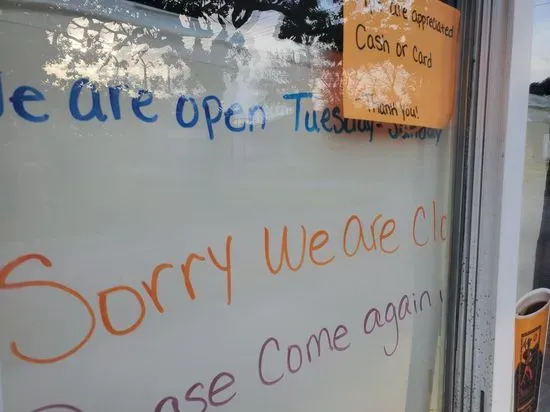 are appreciated
Cash or Card
Thank you!
e are open Tuesday - Sunday
Sorry We are Clo
ase Come again